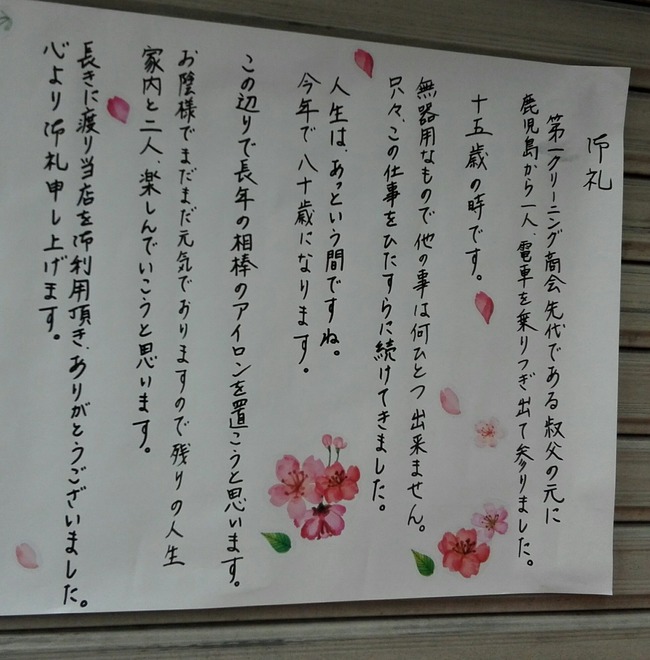 御礼
第一クリーニング商会先代である叔父の元に
鹿児島から一人、電車を乗りつぎ出て参りました。
十五歳の時です。
無器用なもので他の事は何ひとつ出来ません。
只々、この仕事をひたすらに続けてきました。
人生は、あっという間ですね。
今年で八十歳になります。
この辺りで長年の相棒のアイロンを置こうと思います。
お陰様でまだまだ元気でおりますので残りの人生
家内と二人、楽しんでいこうと思います。
長きに渡り当店を御利用頂き、ありがとうございました。
心より御礼申し上げます。